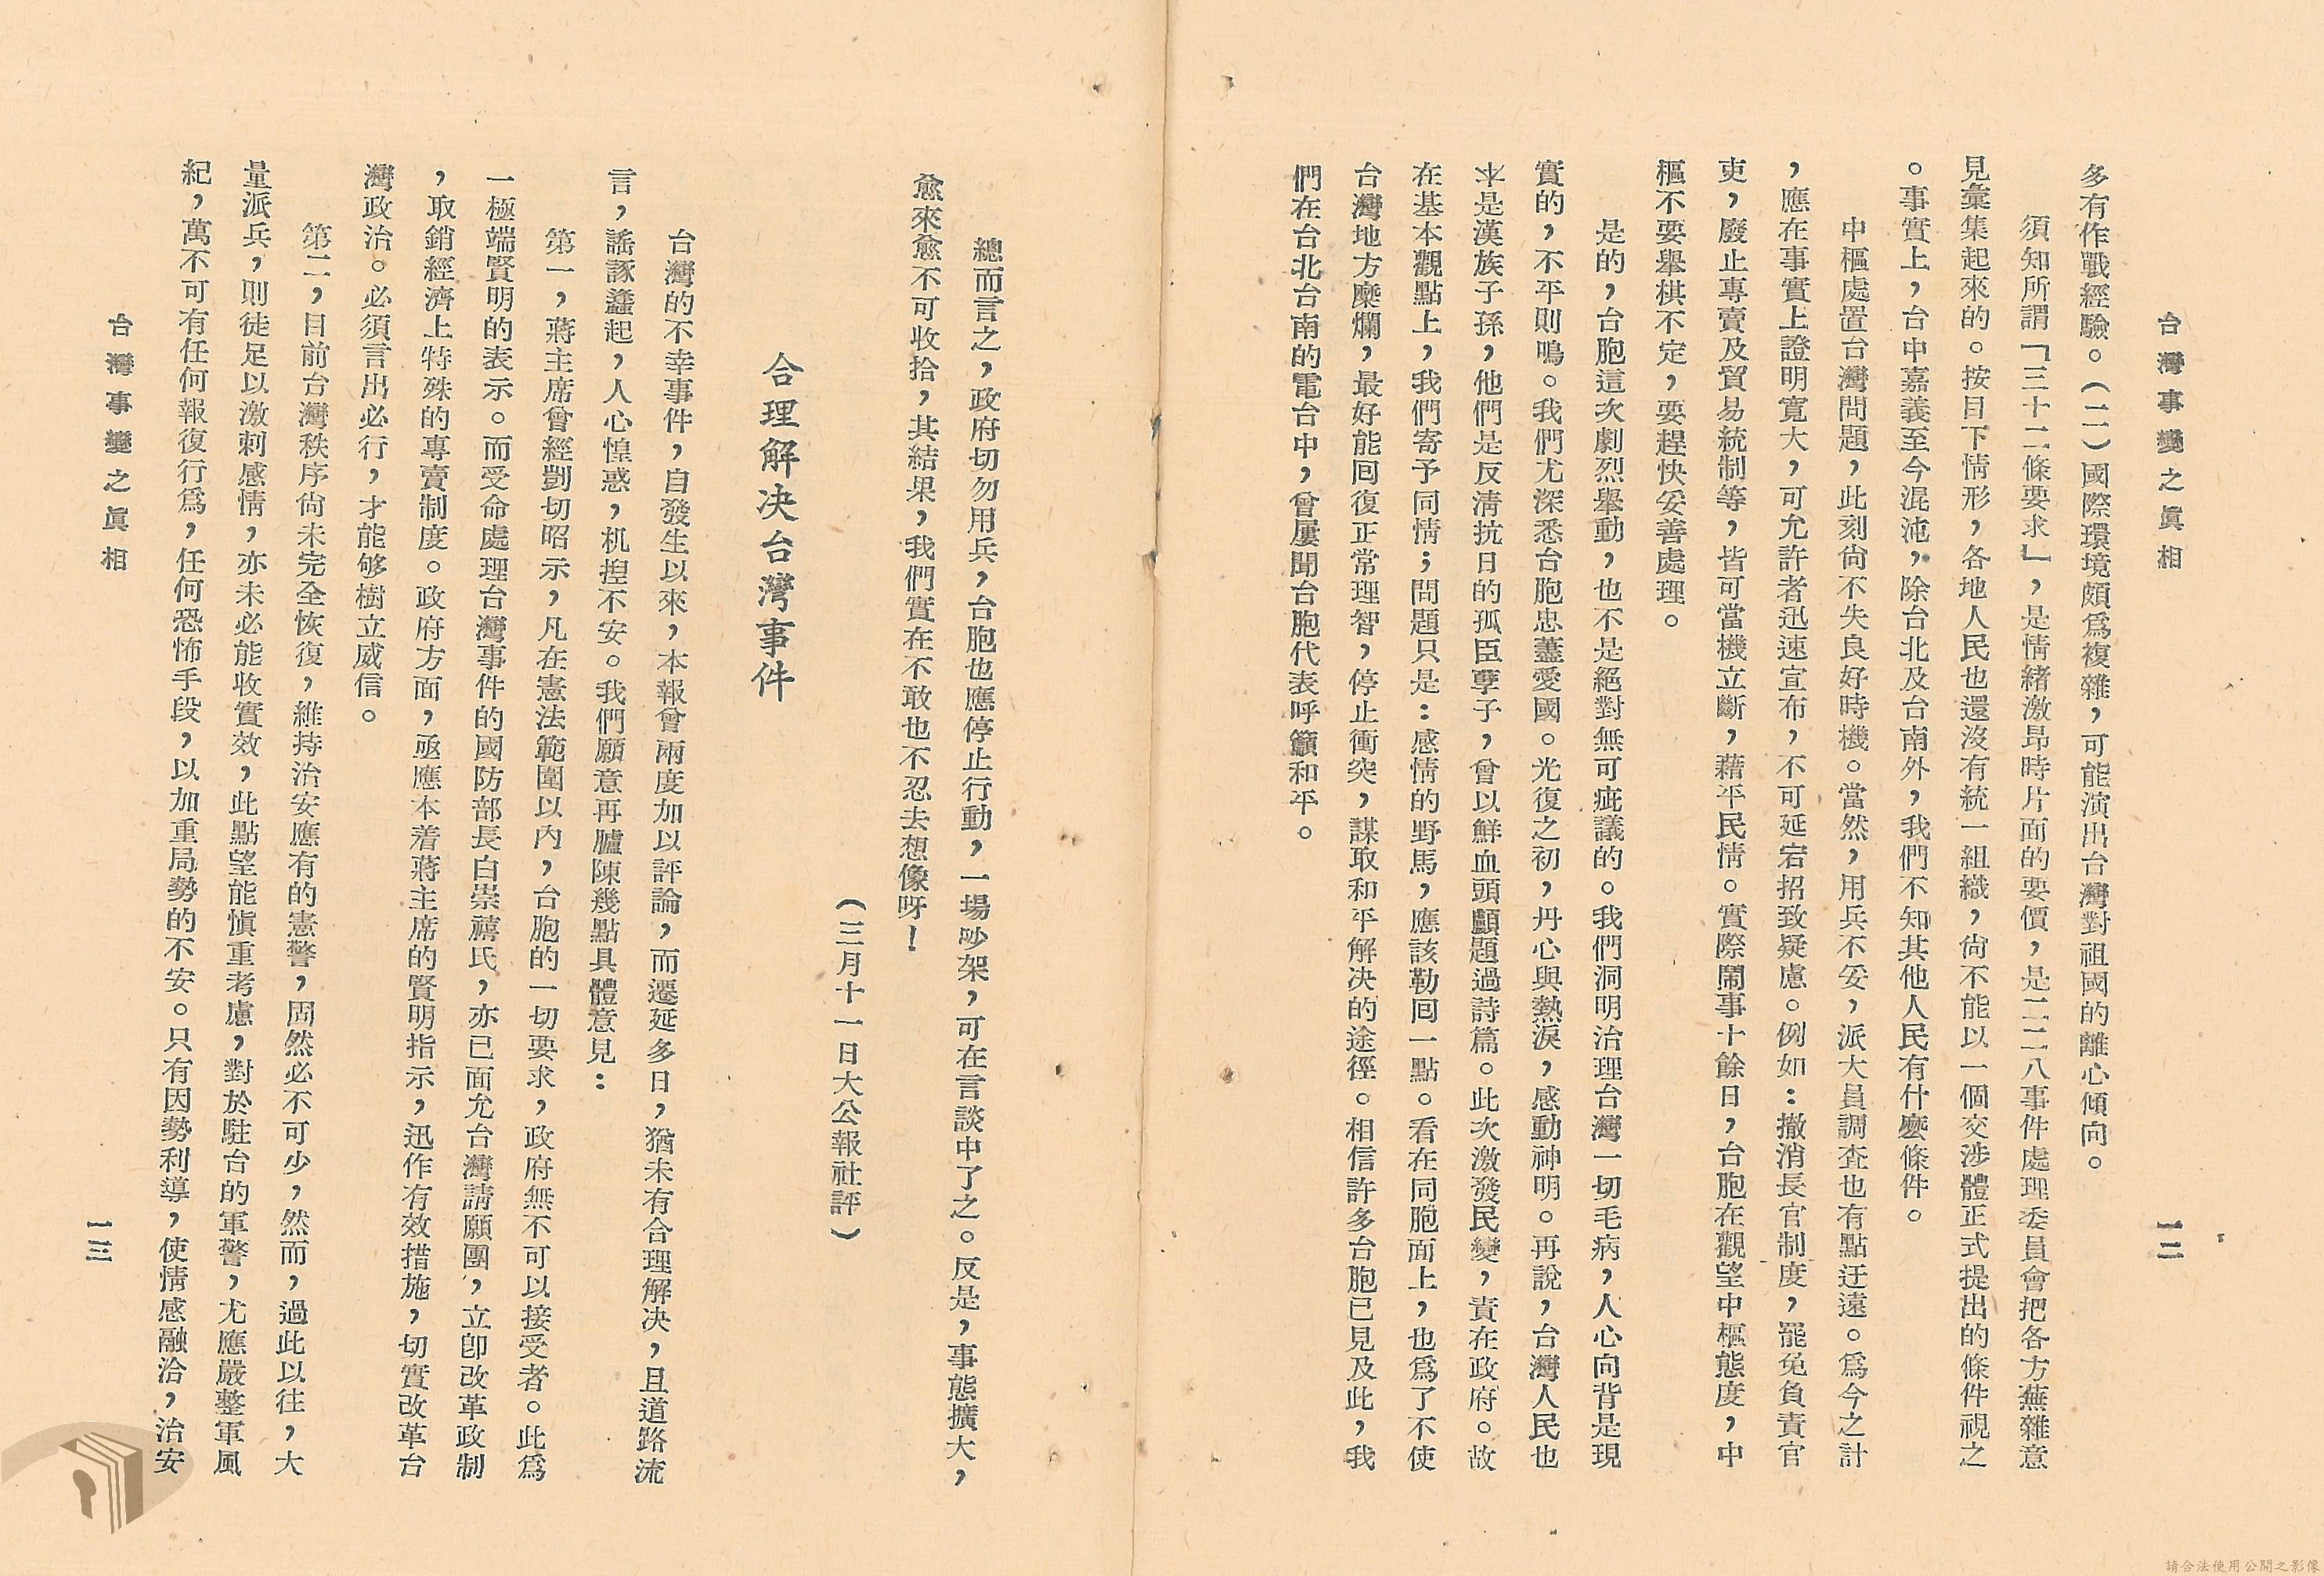 台灣事變之眞相
一二
多有作戰經驗。（二）國際環境頗爲複雜，可能演出台灣對祖國的離心傾向。
須知所謂「三十二條要求」，是情緒激昂時片面的要價，是二二八事件處理委員會把各方蕪雜意
見彙集起來的。按目下情形，各地人民也還沒有統一組織，尙不能以一個交涉體正式提出的條件視之
。事實上，台中嘉義至今混沌，除台北及台南外，我們不知其他人民有什麽條件。
中樞處置台灣問題，此刻尙不失良好時機。當然，用兵不妥，派大員調查也有點迂遠。爲今之計
，應在事實上證明寬大，可允許者迅速宣布，不可延宕招致疑慮。例如：撤消長官制度，罷免負責官
吏，廢止專賣及貿易統制等，皆可當機立斷，藉平民情。實際鬧事十餘日，台胞在觀望中樞態度，中
樞不要舉棋不定，要趕快妥善處理。
是的，台胞這次劇烈舉動，也不是絕對無可疵議的。我們洞明治理台灣一切毛病，人心向背是現
實的，不平則鳴。我們尤深悉台胞忠藎愛國。光復之初，丹心與熱淚，感動神明。再說，台灣人民也
半是漢族子孫，他們是反淸抗日的孤臣孽子，曾以鮮血頭顱題過詩篇。此次激發民變，責在政府。故
在基本觀點上，我們寄予同情；問題只是：感情的野馬，應該勒回一點。看在同胞面上，也爲了不使
台灣地方糜爛，最好能回復正常理智，停止衝突，謀取和平解决的途徑。相信許多台胞已見及此，我
們在台北台南的電台中，曾屢聞台胞代表呼籲和平。
總而言之，政府切勿用兵，台胞也應停止行動，一場吵架，可在言談中了之。反是，事態擴大，
愈來愈不可收拾，其結果，我們實在不敢也不忍去想像呀！
（三月十一日大公報社評）
合理解决台灣事件
台灣的不幸事件，自發生以來，本報曾兩度加以評論，而遷延多日，猶未有合理解决，且道路流
言，謠諑蠭起，人心惶惑，机揑不安。我們願意再臚陳幾點具體意見：
第一，蔣主席曾經剴切昭示，凡在憲法範圍以內，台胞的一切要求，政府無不可以接受者。此爲
一極端賢明的表示。而受命處理台灣事件的國防部長白崇禧氏，亦已面允台灣請願團，立卽改革政制
，取銷經濟上特殊的專賣制度。政府方面，亟應本着蔣主席的賢明指示，迅作有效措施，切實改革台
灣政治。必須言出必行，才能够樹立威信。
第二，目前台灣秩序尙未完全恢復，維持治安應有的憲警，固然必不可少，然而，過此以往，大
量派兵，則徒足以激刺感情，亦未必能收實效，此點望能愼重考慮，對於駐台的軍警，尤應嚴整軍風
紀，萬不可有任何報復行爲，任何恐怖手段，以加重局勢的不安。只有因勢利導，使情感融洽，治安
台灣事變之眞相
一三
請合法使用公開之影像